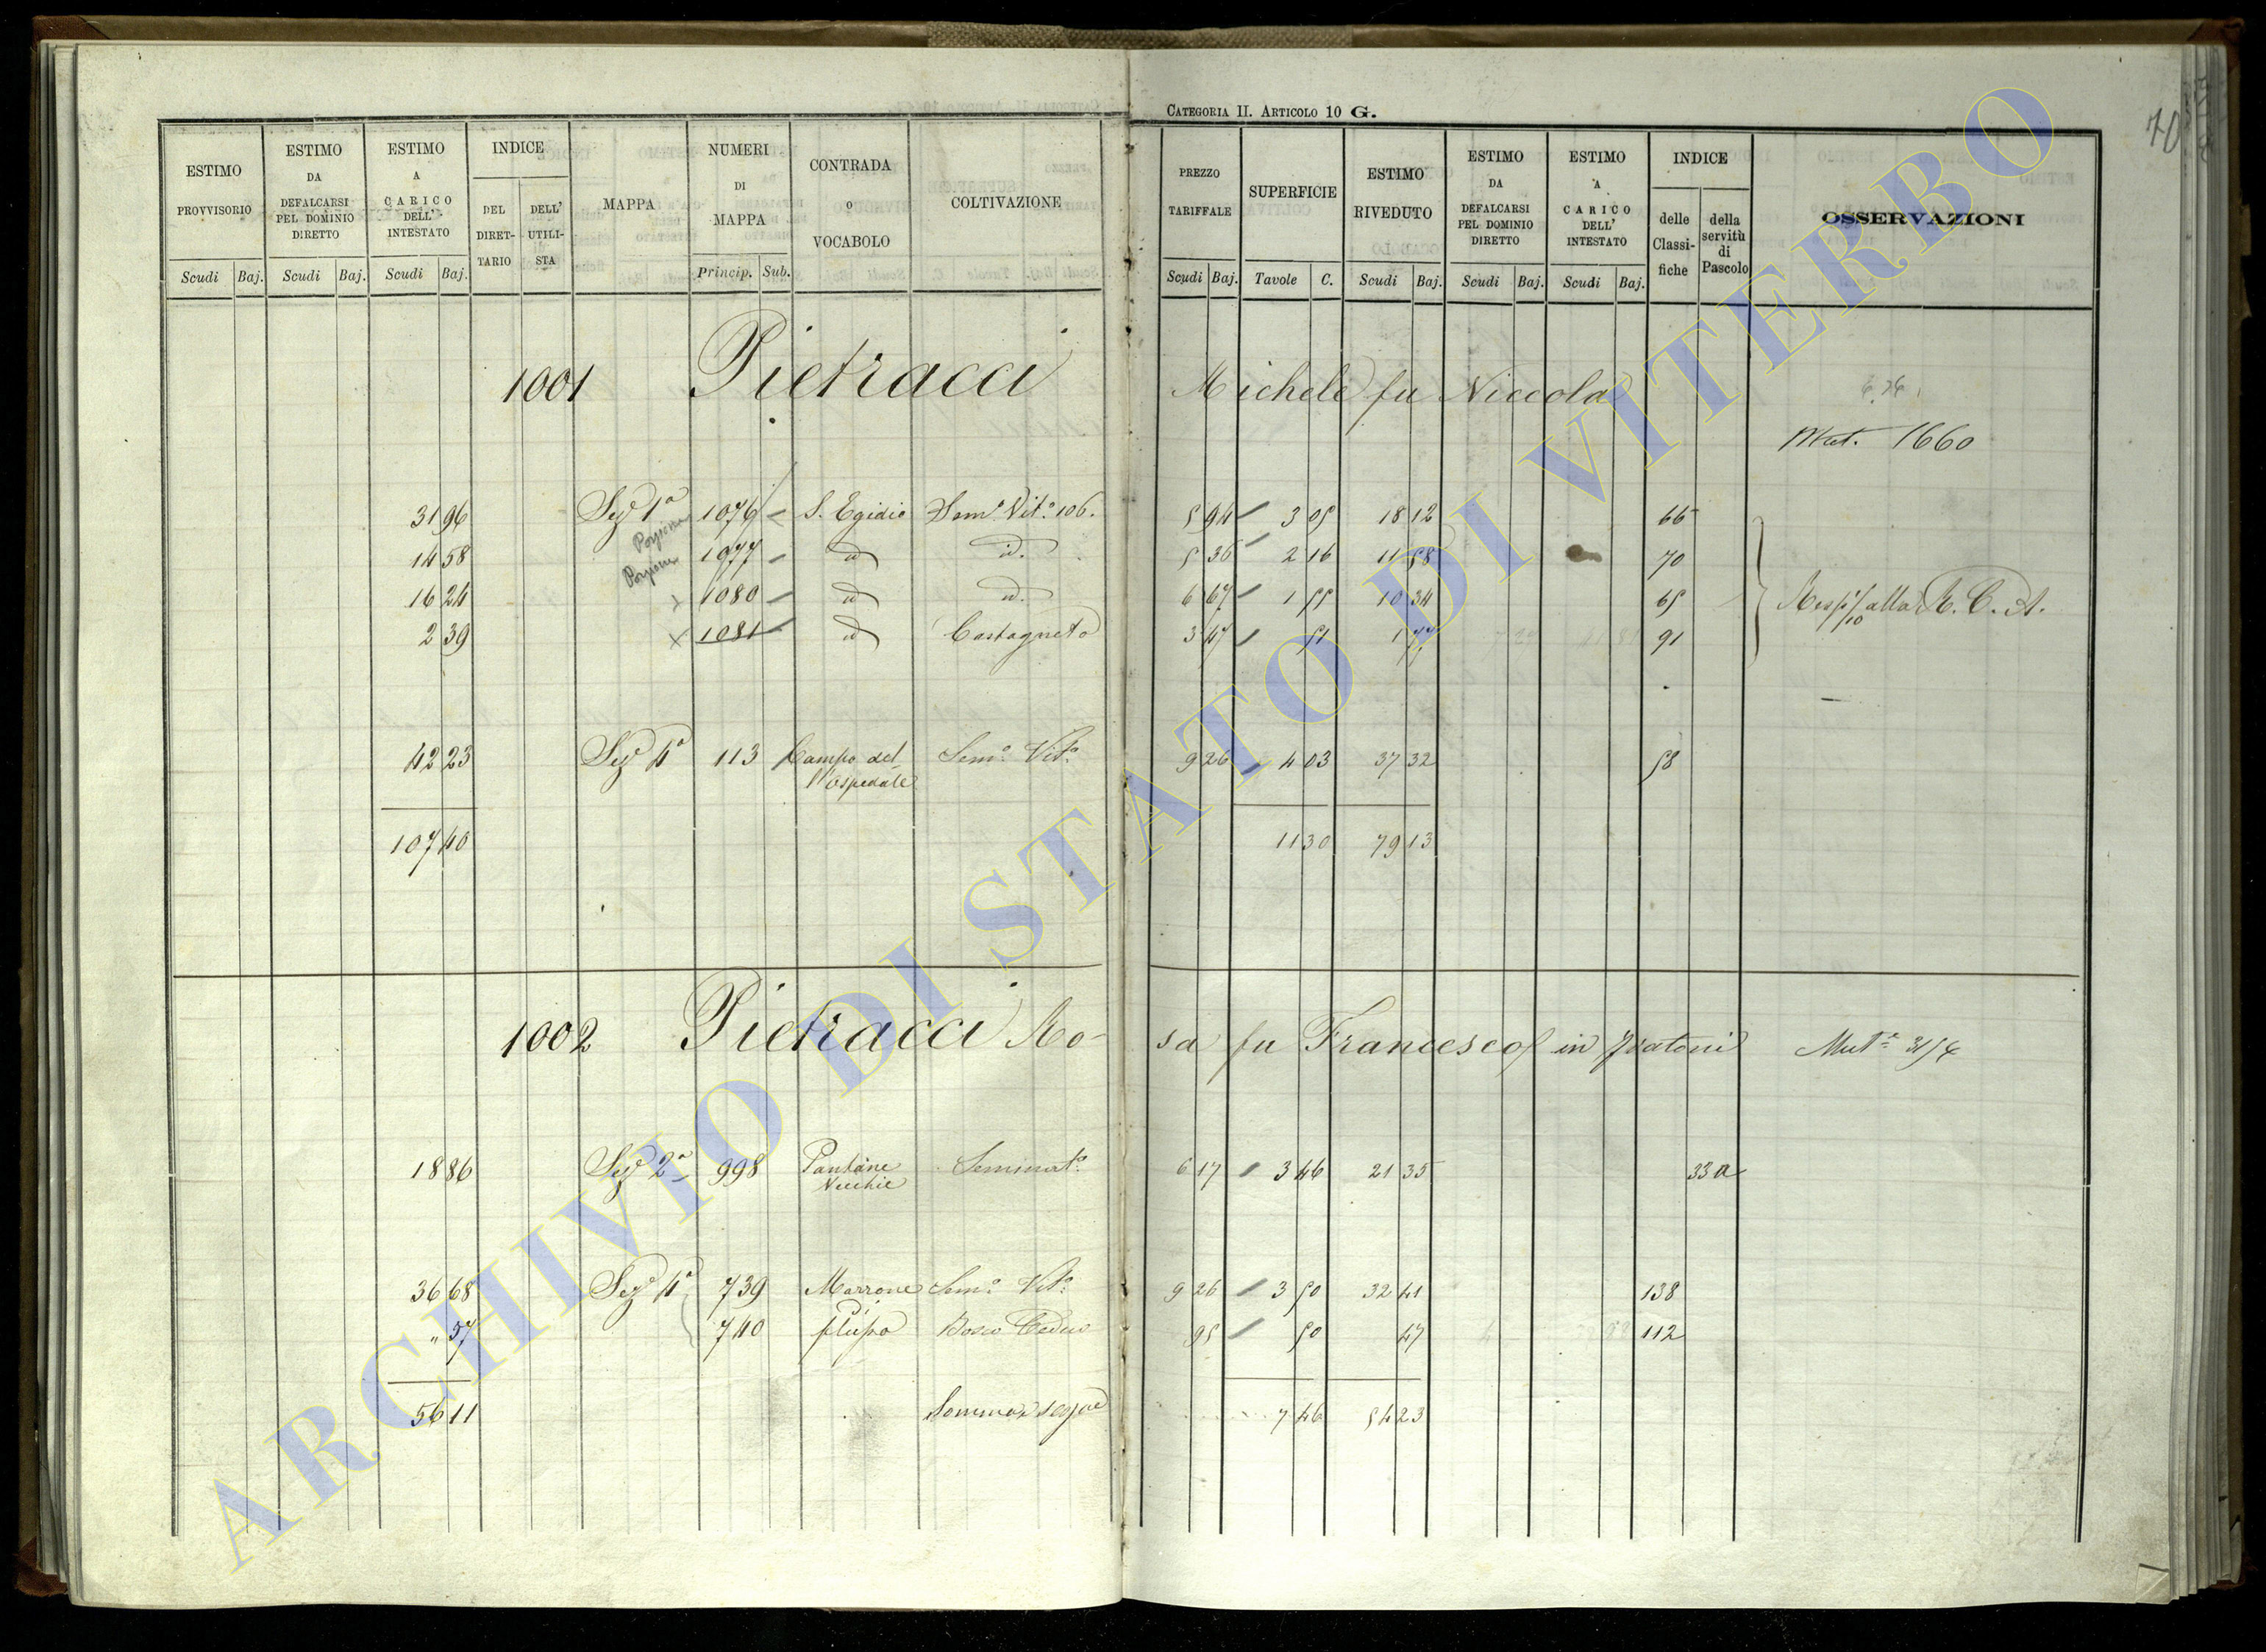 CATEGORIA II. ARTICOLO 10 G.
ESTIMO PROVVISORIO Scudi Baj. ESTIMO DA DEFALCARSI PEL DOMINIO DIRETTO Scudi Baj. ESTIMO A CARICO DELL' INTESTATO Scudi Baj. INDICE DEL DIRETTARIO DELL' UTILISTA MAPPA NUMERI DI MAPPA Princip. Sub. CONTRADA o VOCABOLO COLTIVAZIONE
PREZZO TARIFFALE Scudi Baj. SUPERFICIE Tavole C. ESTIMO RIVEDUTO Scudi Baj. ESTIMO DA DEFALCARSI PEL DOMINIO DIRETTO Scudi Baj. ESTIMO A CARICO DELL' INTESTATO Scudi Baj. INDICE delle Classifiche della servitù di Pascolo OSSERVAZIONI
70
1001 Pietracci Michele fu Niccola
Mut. 1660
31 96 Sez.e 1a 1076 S. Egidio Sem.o Vit.o 106. 5 94 3 05 18 12 66
Porzione
14 58 1077 id id. 5 36 2 16 11 58 70
Porzione
16 24 x 1080 id id. 6 67 1 55 10 34 65 alla R. C. A.
2 39 x 1081 id Castagneto 3 47 51 1 77 91
42 23 Sez.e 4a 113 Campo del- Sem.o Vit.o 9 26 4 03 37 32 58
l'Ospedale
107 40 11 30 79 13
1002 Pietracci Rosa fu Francesco in Mut.e
18 86 Sez.e 2a 998 Pantane Seminat.o 6 17 3 46 21 35 33 a
Vecchie
36 68 Sez.e 4a 739 Marrone Sem.o Vit.o 9 26 3 50 32 41 138
" 57 740 Bosco Ceduo 95 50 47 112
56 11 Somma e segue 7 46 54 23
ARCHIVIO DI STATO DI VITERBO